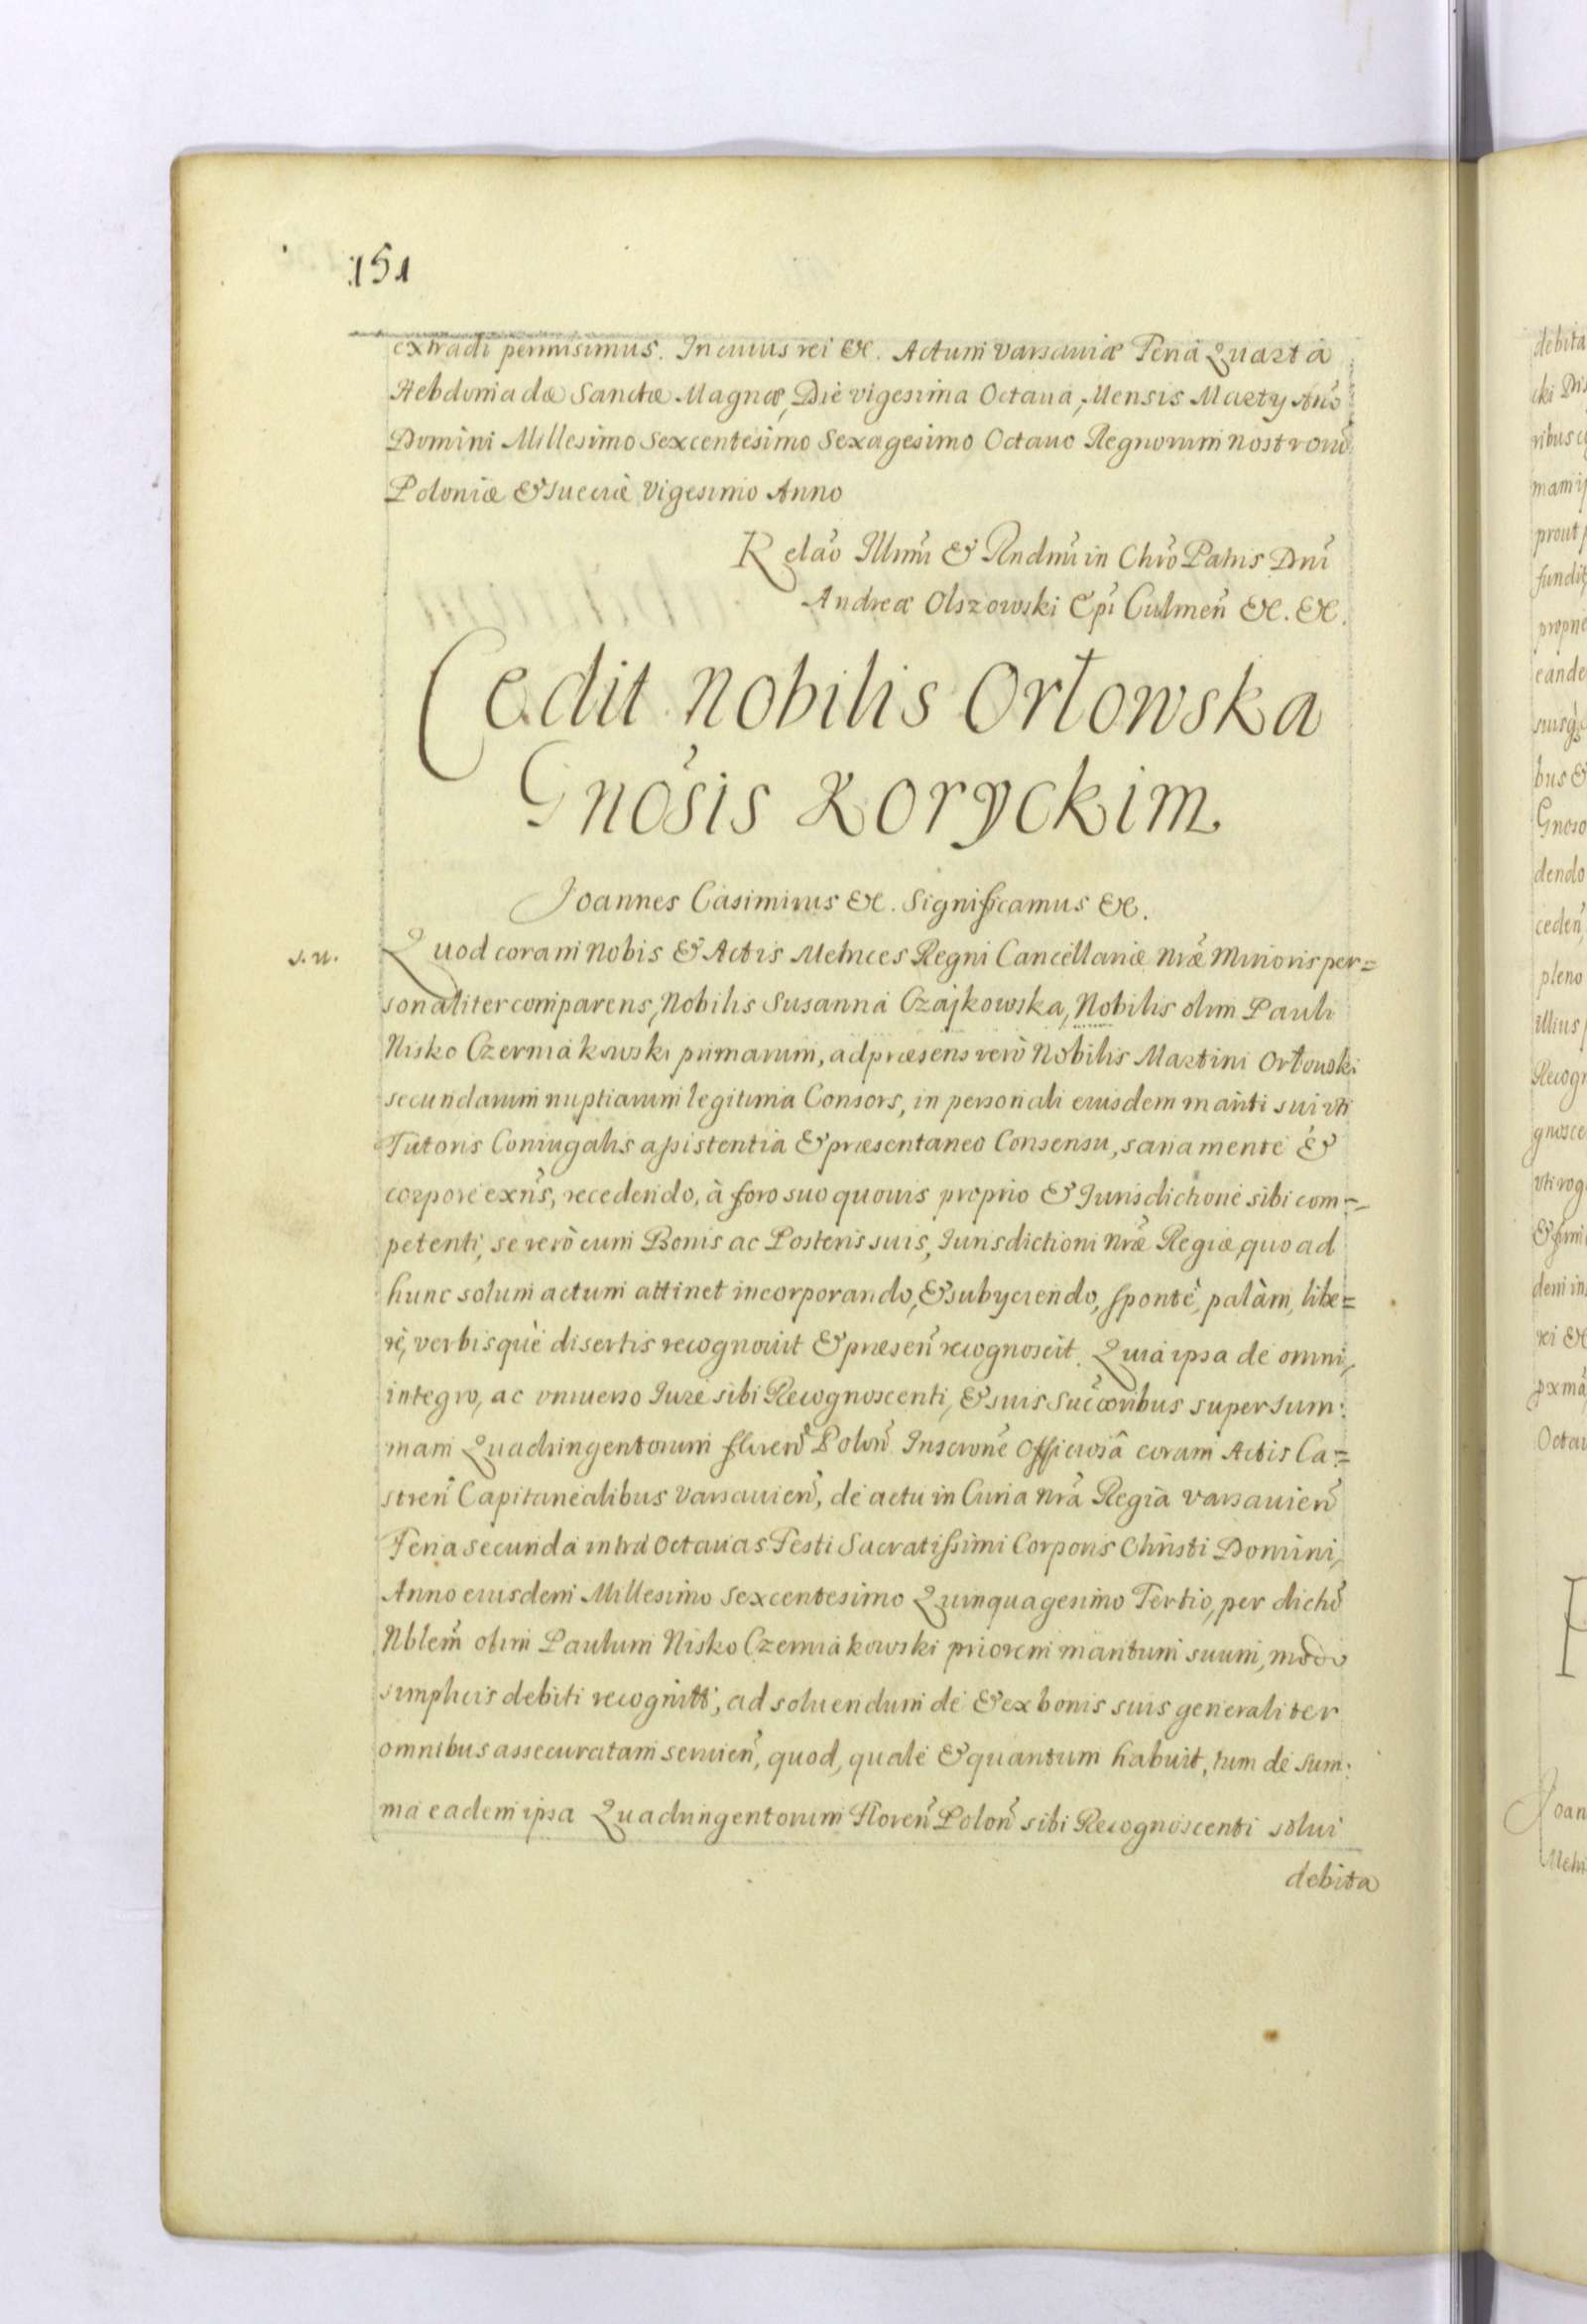 151
extradi permisimus. In cuius rei &c. Actum Varsauiæ Feria Quarta
Hebdomadæ Sanctæ Magnæ, Die vigesima Octaua, Mensis Marty Año
Domini Millesimo Sexcentesimo Sexagesimo Octauo Regnorum nostroru͂
Poloniæ & Sueciæ Vigesimo Anno
Relaõ Illmi & Rndmi in Chro Patris Dni
Andreæ Olszowski Epi Culmen̄ &c. &c.
Cedit Nobilis Orłowska
Gnosis Koryckim
Joannes Casimirus &c. Significamus &c.
s. n.
Quod coram Nobis & Actis Metrices Regni Cancellariæ Nræ Minoris per=
sonaliter comparens, Nobilis Susanna Czajkowska, Nobilis olim Pauli
Nisko Czerniakowski primarum, ad præsens verò Nobilis Martini Orłowski
secundarum nuptiarum legitima Consors, in personali eiusdem mariti sui vti
Tutoris Coniugalis assistentia & præsentaneo Consensu, sana mente &
corpore exn̄s, recedendo, à foro suo quouis proprio & Jurisdictione sibi com=
petenti, se verò cum Bonis ac Posteris suis, Jurisdictioni Nræ Regiæ, quo ad
hunc solum actum attinet incorporando, & subyciendo, sponte, palàm, libe=
rè, verbisquè disertis recognouit & præsen̄ recognoscit. Quia ipsa de omni,
integro, ac vniuerso Jure sibi Recognoscenti, & suis succōribus super sum:
mam Quadringentorum floren̄ Polon̄ Inscrone Officiosâ coram Actis Ca=
stren̄ Capitanealibus Varsauien̄, de actu in Curia Nra Regia Varsauien̄
Feria secunda intra Octauas Festi Sacratissimi Corporis Christi Domini,
Anno eiusdem Millesimo Sexcentesimo Quinquagesimo Tertio, per dictu͂
Nblem̄ olim Paulum Nisko Czerniakowski priorem maritum suum, modo
simplicis debiti recogniti, ad soluendum de & ex bonis suis generaliter
omnibus assecuratam seruien̄, quod, quale & quantum habuit, tum de sum:
ma eadem ipsa Quadringentorum Floren̄ Polon̄ sibi Recognoscenti solui
debita